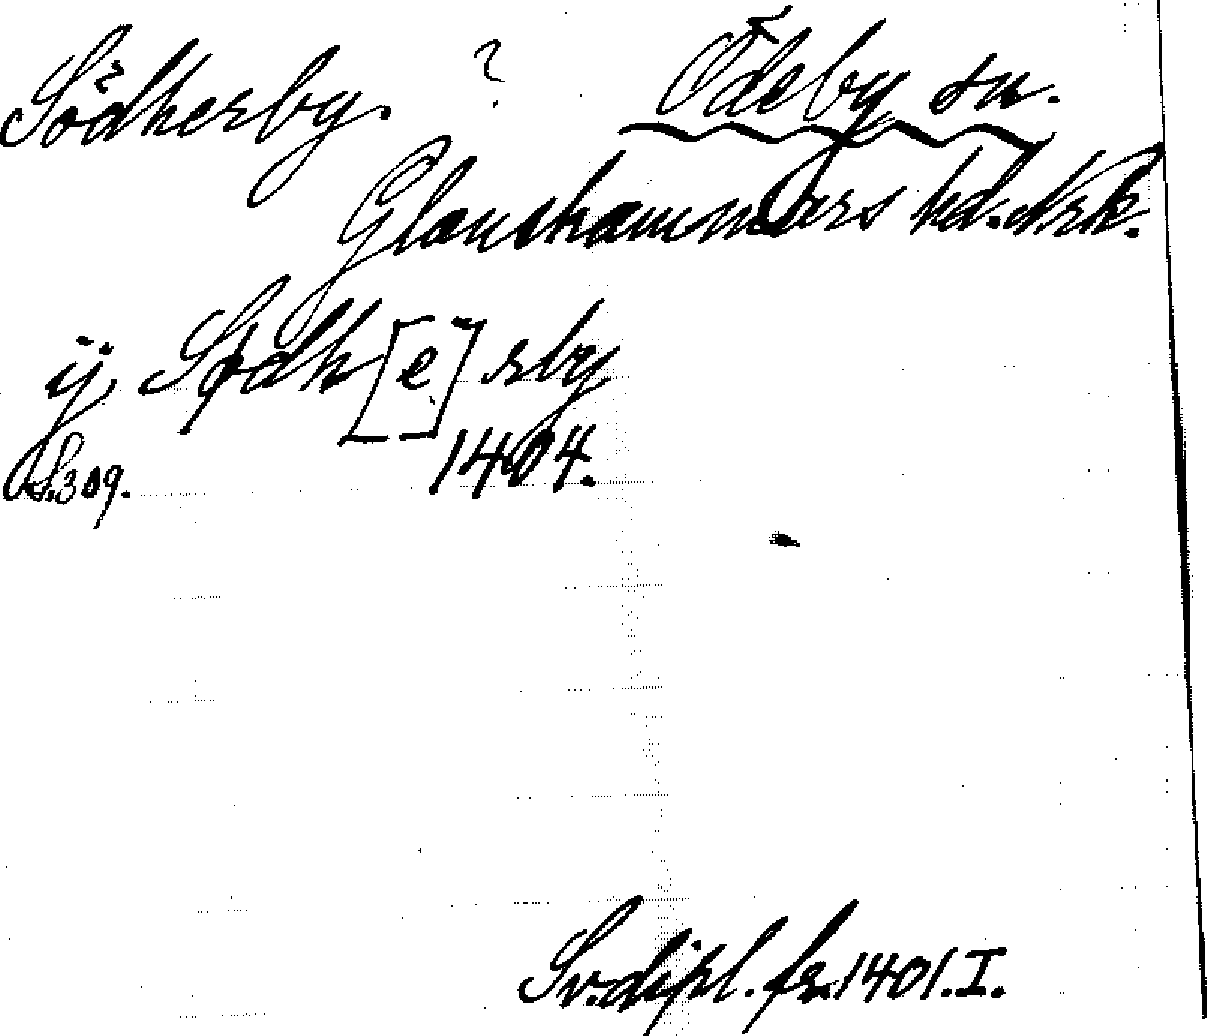 Södherby. ? Ödeby sn.
Glanshammars hd. Nrk.
ij Sødh[e]rby
S.309. 1404.
Sv.dipl. fr. 1401. I.